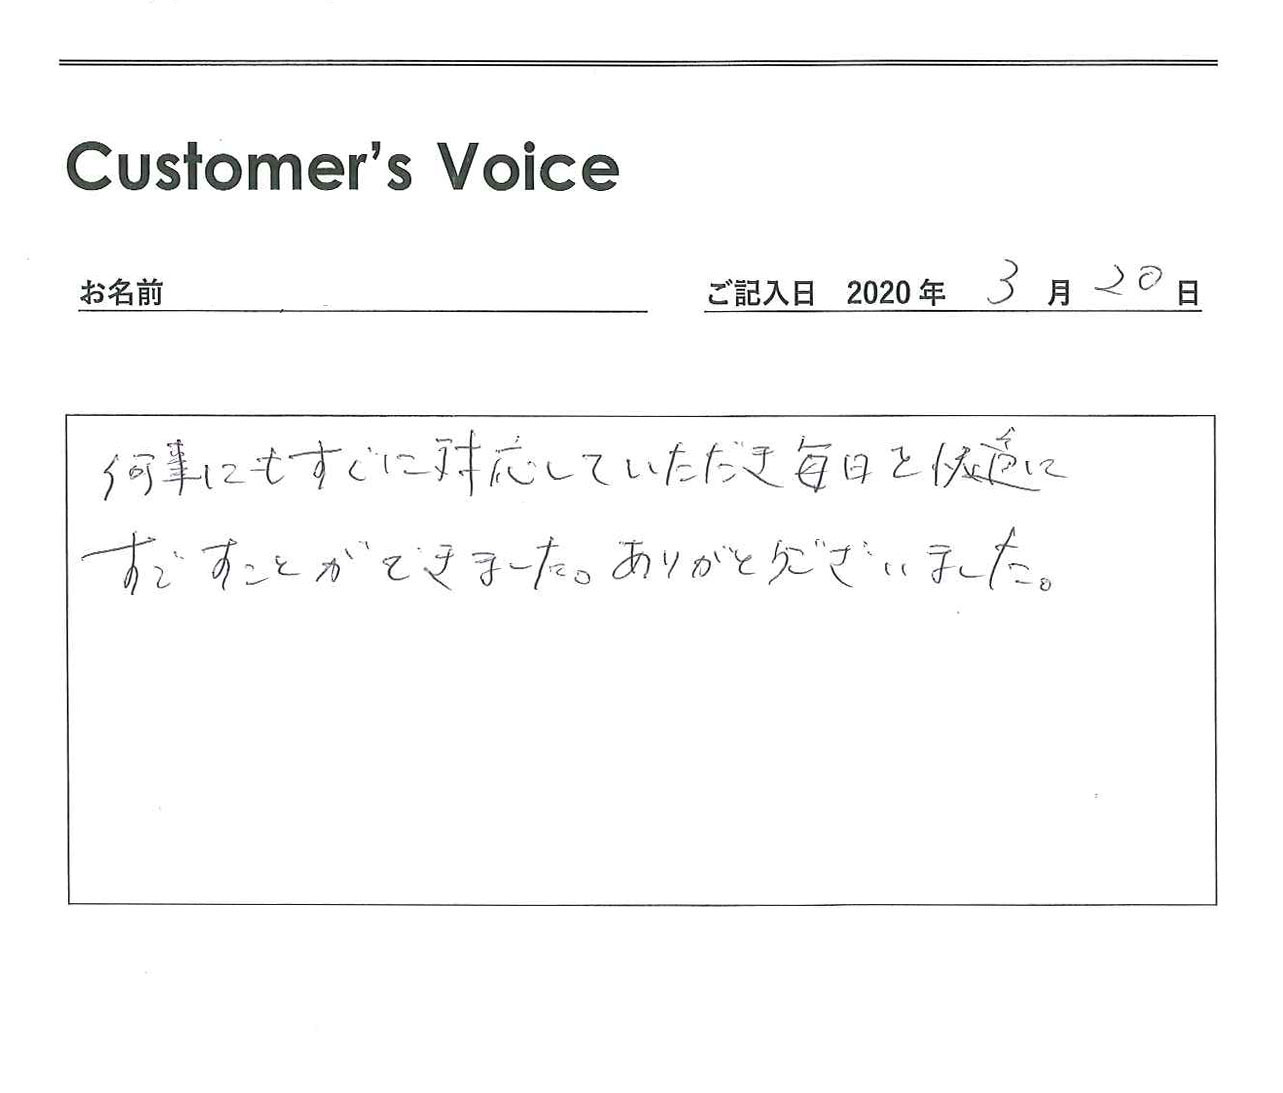 Customer's Voice
お名前
ご記入日 2020年 3月20日
何事にもすぐに対応していただき毎日を快適に
すごすことができました。ありがとうございました。